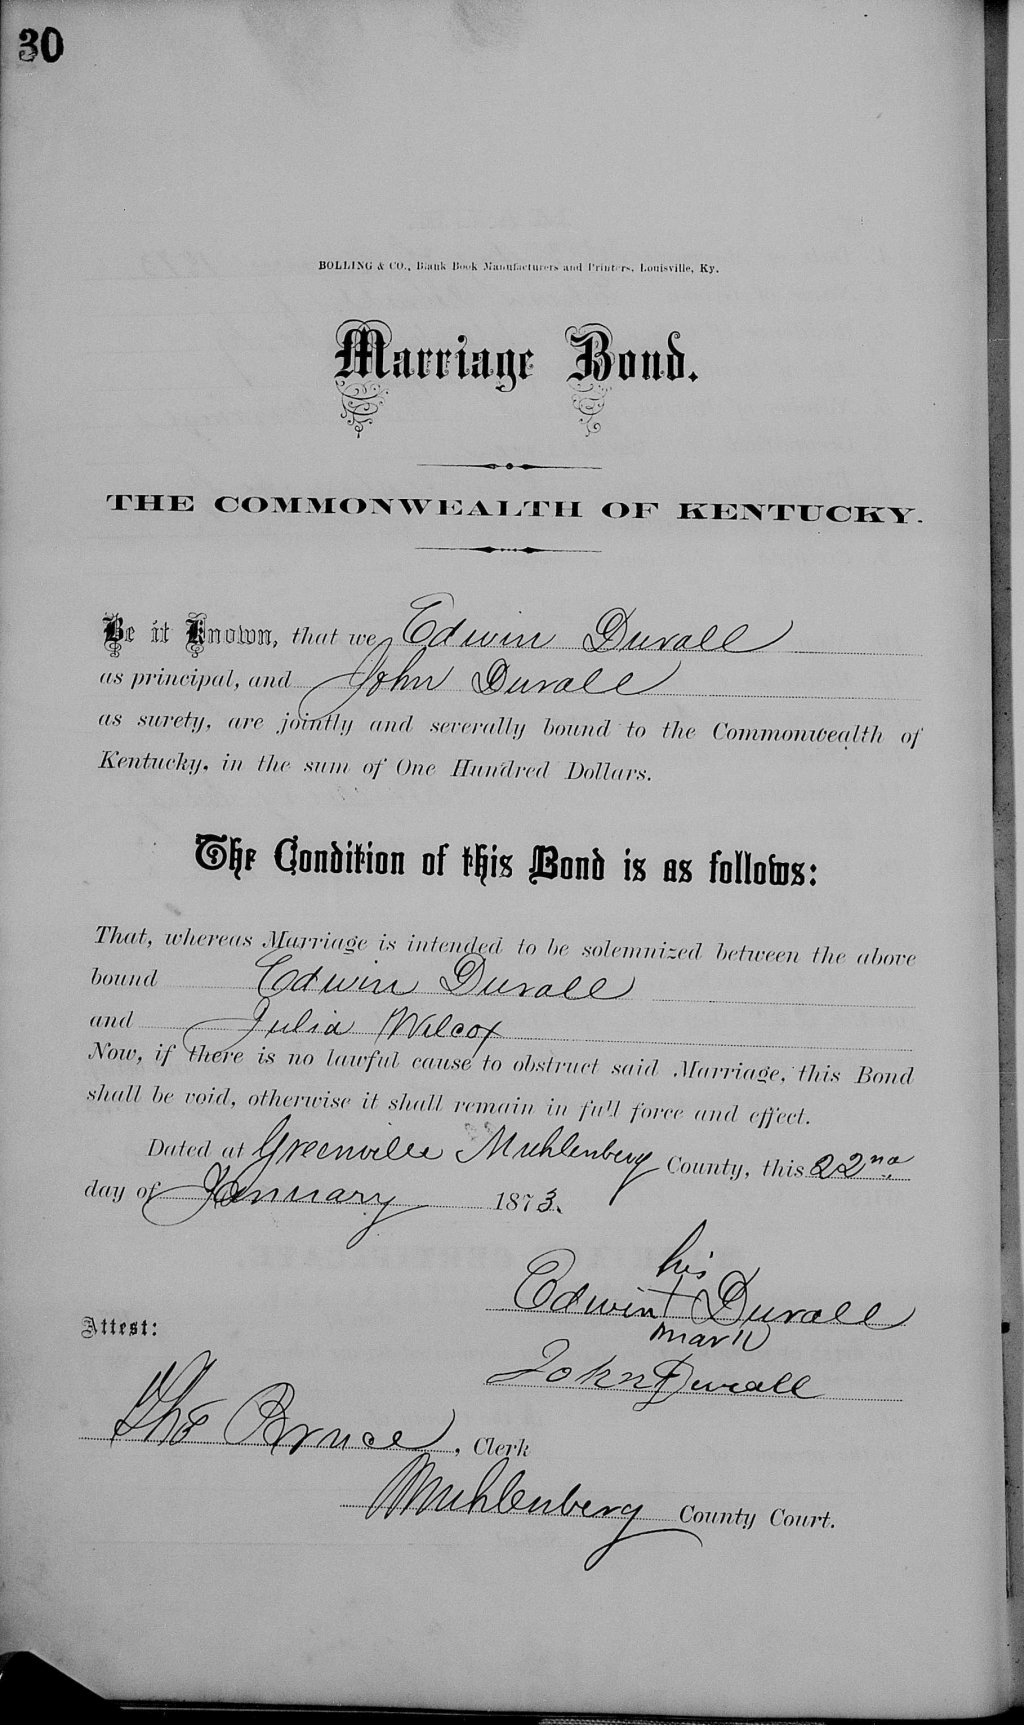 30
BOLLING & CO., Blank Book Manufacturers and Printers, Louisville, Ky.
Marriage Bond.
THE COMMONWEALTH OF KENTUCKY.
Be it Known, that we Edwin Duvall
as principal, and John Duvall
as surety, are jointly and severally bound to the Commonwealth of
Kentucky, in the sum of One Hundred Dollars.
The Condition of this Bond is as follows:
That, whereas Marriage is intended to be solemnized between the above
bound Edwin Duvall
and Julia Wilcox
Now, if there is no lawful cause to obstruct said Marriage, this Bond
shall be void, otherwise it shall remain in full force and effect.
Dated at Greenville Muhlenberg County, this 22nd
day of January 1873.
his
Edwin + Duvall
mark
Attest:
John Duvall
Tho Bruce, Clerk
Muhlenberg County Court.